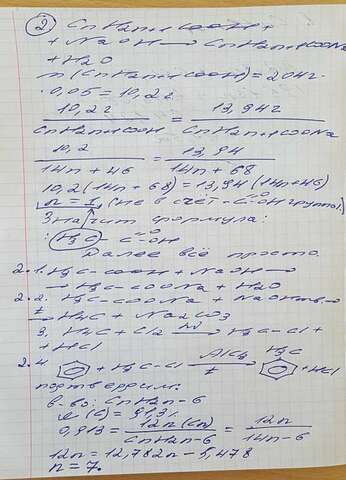 ② CnH2n+1COOH +
+ NaOH → CnH2n+1COONa
+ H2O
m(CnH2n+1COOH) = 204г ·
· 0,05 = 10,2г
10,2г / CnH2n+1COOH = 13,94г / CnH2n+1COONa
10,2 / 14n + 46 = 13,94 / 14n + 68
10,2(14n + 68) = 13,94(14n+46)
n = 1, (не в счёт -C=O-OH группы)
Значит формула:
: H3C - C=O-OH
Далее всё просто.
2.1. H3C-COOH + NaOH →
→ H3C-COONa + H2O
2.2. H3C-COONa + NaOHтв. →
t→ H4C + Na2CO3
3. H4C + Cl2 hν→ H3C-Cl +
+ HCl
2.4. + H3C-Cl AlCl3 t→ H3C + HCl
подтвердим:
в-во: CnH2n-6
ω(C) = 91,3%
0,913 = 12n(Cn) / CnH2n-6 = 12n / 14n-6
12n = 12,782n - 5,478
n = 7.